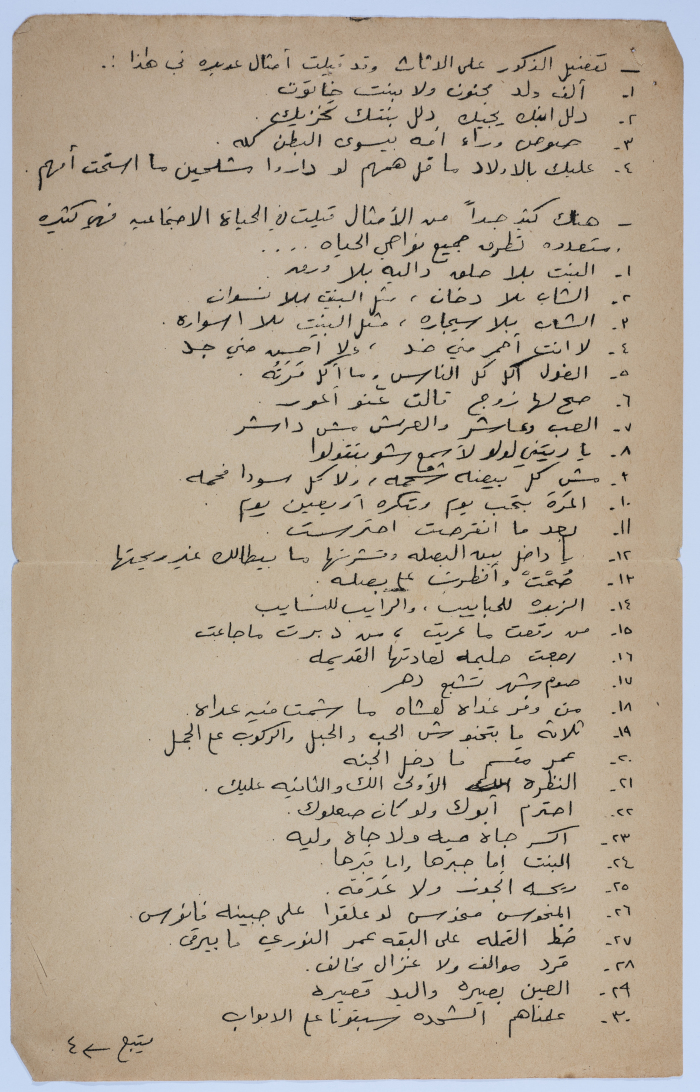 أ- تفضيل الذكور على الاناث وقد قيلت أمثال عديده في هذا :.
١- ألف ولد مجنون ولا بنت خاتون
٢- دلل ابنك يجيبك دلل بنتك تخزيك.
٣- صوص وراء امه بيسوى البطن كله.
٤- عليك بالاولاد ما قل همهم لو داروا مشلحين ما استحت أمهم.
- هناك كثير جداً من الأمثال قيلت في الحياة الاجتماعيه فهي كثيره
ومتعدده تطرق جميع نواحي الحياه ....
١- البنت بلا حلق داليه بلا ورق.
٢- الشاب بلا دخان، مثل البيت بلا نسوان
٣- الشاب بلا سيجاره، مثل البنت بلا اسواره.
٤- لا انت أخمر مني خد، ولا أحسن مني جد
٥- الغول أكل كل الناس وما أكل مَرَتُه.
٦- صح لها زوج قالت عنو أعور.
٧- العب وعاشر والعرش مش داشر
٨- يا ريتني لولو لأسمع شو بتقولوا
٩- مش كل بيضه شحمه، ولا كل سودا فحمه.
١٠- المَرَة بتحب يوم وبتكره أربعين يوم
١١- بعد ما انقرصت احترست.
١٢- يا داخل بين البصله وقشرتها ما بيطالك غير ريحتها
١٣- صُمْتْ وأفطرت على بصله.
١٤- الزبده للحبايب، والرايب للنسايب
١٥- من رقعت ما عريت، من دبرت ما جاعت
١٦- رجعت حليمه لعادتها القديمه
١٧- صوم شهر تشبع دهر
١٨- من وفر غداه لعشاه ما شمتت فيه عداه.
١٩- ثلاثه ما بتخفوش الحب والحبل والركوب على الجمل
٢٠- عمر مقسم ما دخل الجنه
٢١- النظره الأولى الك والثانيه عليك.
٢٢- احترم أبوك ولو كان صعلوك.
٢٣- اكسر جاه ميه ولا جاه وليه.
٢٤- البنت إما جبرها واما قبرها.
٢٥- ريحة الجوز ولا عَدَمُه.
٢٦- المنحوس منحوس لو علقوا على جبينه فانوس.
٢٧- حُط القمله على البقه عمر النوري ما بيرقى.
٢٨- قرد موالف ولا غزال مخالف.
٢٩- العين بصيره واليد قصيره
٣٠- علمناهم الشحده سبقونا على الابواب
يتبع ← ٤